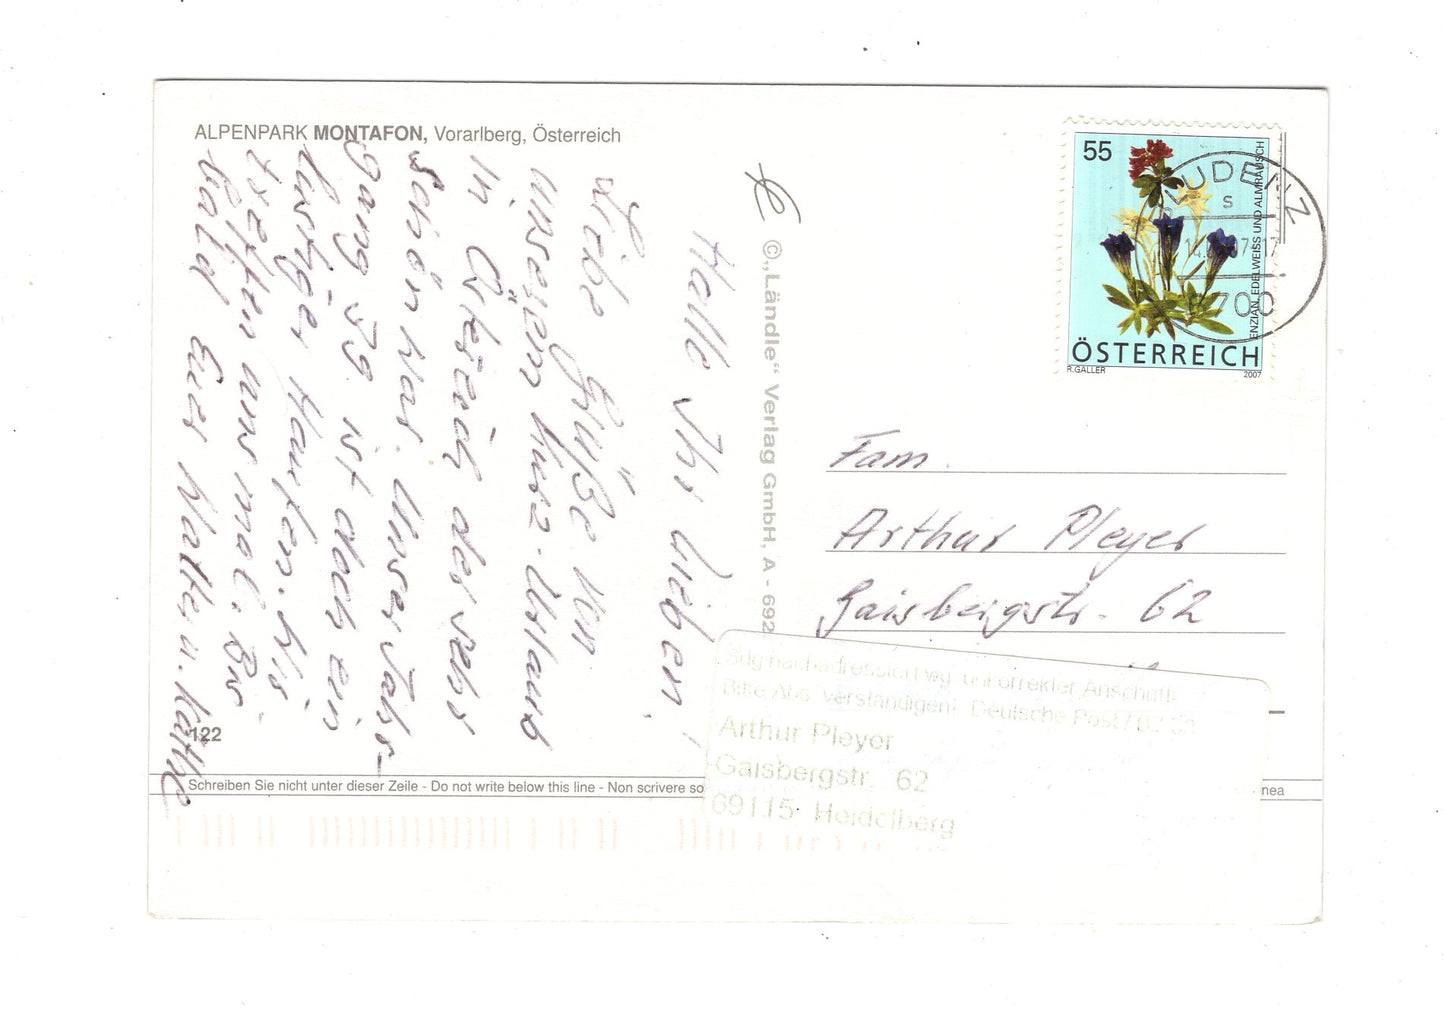 ALPENPARK MONTAFON, Vorarlberg, Österreich
Hallo Ihr Lieben,
Liebe Grüße von
unserem Kurz-Urlaub
in Österreich der sehr
schön war. Unser Jahr-
gang 39 ist doch ein
lustiger Haufen. Wir
treffen uns mal. Bis
bald Eure Walter u. Käthe
122
©„Ländle“ Verlag GmbH, A - 692
55
ENZIAN, EDELWEISS UND ALMRAUSCH
ÖSTERREICH
R.GALLER
2007
BLUDENZ
s
6700
Fam.
Arthur Pleyer
Gaisbergstr. 62
Sdg nachadressiert wg. unkorrekter Anschrift
Bitte Abs. verständigen! Deutsche Post /
Arthur Pleyer
Gaisbergstr. 62
69115 Heidelberg
Schreiben Sie nicht unter dieser Zeile - Do not write below this line - Non scrivere so
nea